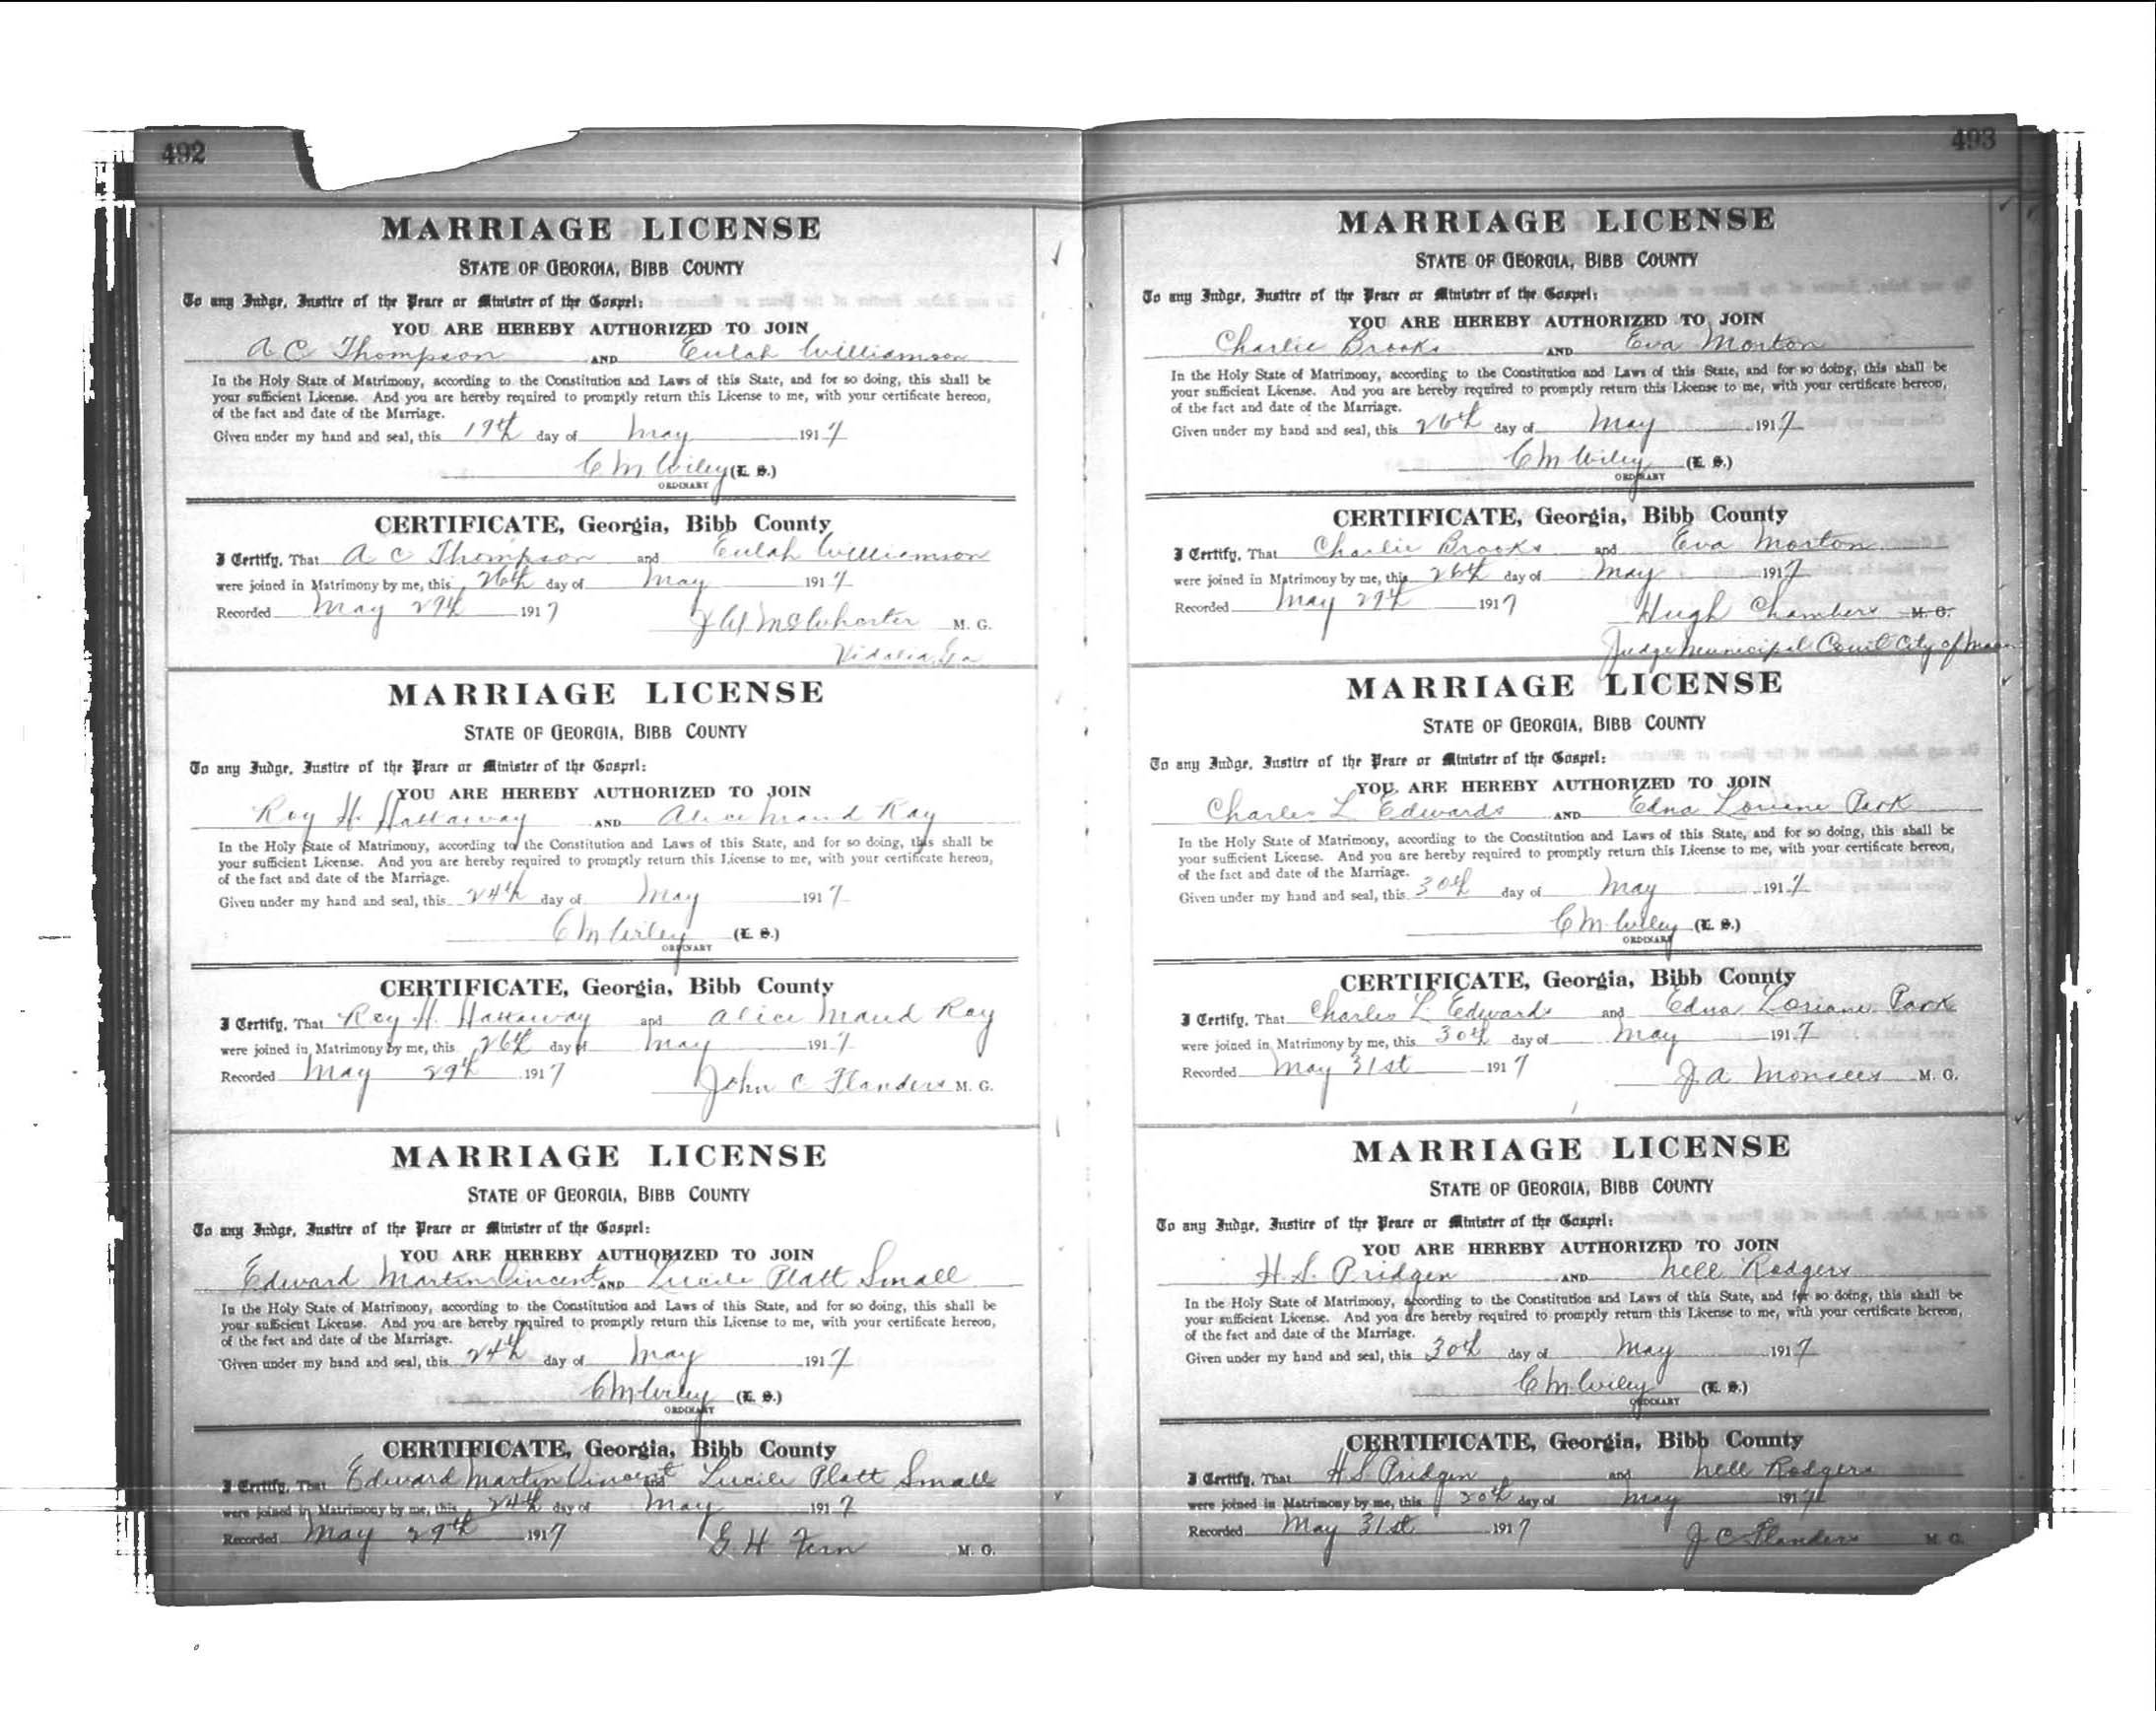 492
MARRIAGE LICENSE
STATE OF GEORGIA, BIBB COUNTY
To any Judge, Justice of the Peace or Minister of the Gospel:
YOU ARE HEREBY AUTHORIZED TO JOIN
A C Thompson AND Eulah Williamson
In the Holy State of Matrimony, according to the Constitution and Laws of this State, and for so doing, this shall be
your sufficient License. And you are hereby required to promptly return this License to me, with your certificate hereon,
of the fact and date of the Marriage.
Given under my hand and seal, this day of May 1917
C M Wiley (L. S.)
ORDINARY
CERTIFICATE, Georgia, Bibb County
I Certify, That A C Thompson and Eulah Williamson
were joined in Matrimony by me, this 26th day of May 1917
Recorded May 29th 1917 J W McWhorter M. G.
Vidalia, Ga
MARRIAGE LICENSE
STATE OF GEORGIA, BIBB COUNTY
To any Judge, Justice of the Peace or Minister of the Gospel:
YOU ARE HEREBY AUTHORIZED TO JOIN
Roy H. Hattaway AND Alice Maud Ray
In the Holy State of Matrimony, according to the Constitution and Laws of this State, and for so doing, this shall be
your sufficient License. And you are hereby required to promptly return this License to me, with your certificate hereon,
of the fact and date of the Marriage.
Given under my hand and seal, this 24th day of May 1917
C M Wiley (L. S.)
ORDINARY
CERTIFICATE, Georgia, Bibb County
I Certify, That Roy H. Hattaway and Alice Maud Ray
were joined in Matrimony by me, this 26th day of May 1917
Recorded May 29th 1917 John C Flanders M. G.
MARRIAGE LICENSE
STATE OF GEORGIA, BIBB COUNTY
To any Judge, Justice of the Peace or Minister of the Gospel:
YOU ARE HEREBY AUTHORIZED TO JOIN
Edward Martin Vincent AND Lucile Platt Small
In the Holy State of Matrimony, according to the Constitution and Laws of this State, and for so doing, this shall be
your sufficient License. And you are hereby required to promptly return this License to me, with your certificate hereon,
of the fact and date of the Marriage.
Given under my hand and seal, this 24th day of May 1917
C M Wiley (L. S.)
ORDINARY
CERTIFICATE, Georgia, Bibb County
I Certify, That Edward Martin Vincent and Lucile Platt Small
were joined in Matrimony by me, this 24th day of May 1917
Recorded May 29th 1917 G H Fern M. G.
493
MARRIAGE LICENSE
STATE OF GEORGIA, BIBB COUNTY
To any Judge, Justice of the Peace or Minister of the Gospel:
YOU ARE HEREBY AUTHORIZED TO JOIN
Charlie Brooks AND Eva Morton
In the Holy State of Matrimony, according to the Constitution and Laws of this State, and for so doing, this shall be
your sufficient License. And you are hereby required to promptly return this License to me, with your certificate hereon,
of the fact and date of the Marriage.
Given under my hand and seal, this 26th day of May 1917
C M Wiley (L. S.)
ORDINARY
CERTIFICATE, Georgia, Bibb County
I Certify, That Charlie Brooks and Eva Morton
were joined in Matrimony by me, this 26th day of May 1917
Recorded May 29th 1917 Hugh Chambers M. G.
Judge Municipal Court City of Macon
MARRIAGE LICENSE
STATE OF GEORGIA, BIBB COUNTY
To any Judge, Justice of the Peace or Minister of the Gospel:
YOU ARE HEREBY AUTHORIZED TO JOIN
Charles L Edwards AND Edna Loriene Park
In the Holy State of Matrimony, according to the Constitution and Laws of this State, and for so doing, this shall be
your sufficient License. And you are hereby required to promptly return this License to me, with your certificate hereon,
of the fact and date of the Marriage.
Given under my hand and seal, this 30th day of May 1917
C M Wiley (L. S.)
ORDINARY
CERTIFICATE, Georgia, Bibb County
I Certify, That Charles L Edwards and Edna Loriane Park
were joined in Matrimony by me, this 30th day of May 1917
Recorded May 31st 1917 J. A Monsees M. G.
MARRIAGE LICENSE
STATE OF GEORGIA, BIBB COUNTY
To any Judge, Justice of the Peace or Minister of the Gospel:
YOU ARE HEREBY AUTHORIZED TO JOIN
H. S. Pridgen AND Nell Rodgers
In the Holy State of Matrimony, according to the Constitution and Laws of this State, and for so doing, this shall be
your sufficient License. And you are hereby required to promptly return this License to me, with your certificate hereon,
of the fact and date of the Marriage.
Given under my hand and seal, this 30th day of May 1917
C M Wiley (L. S.)
ORDINARY
CERTIFICATE, Georgia, Bibb County
I Certify, That H. S. Pridgen and Nell Rodgers
were joined in Matrimony by me, this day of May 1917
Recorded May 31st 1917 J C Flanders M. G.